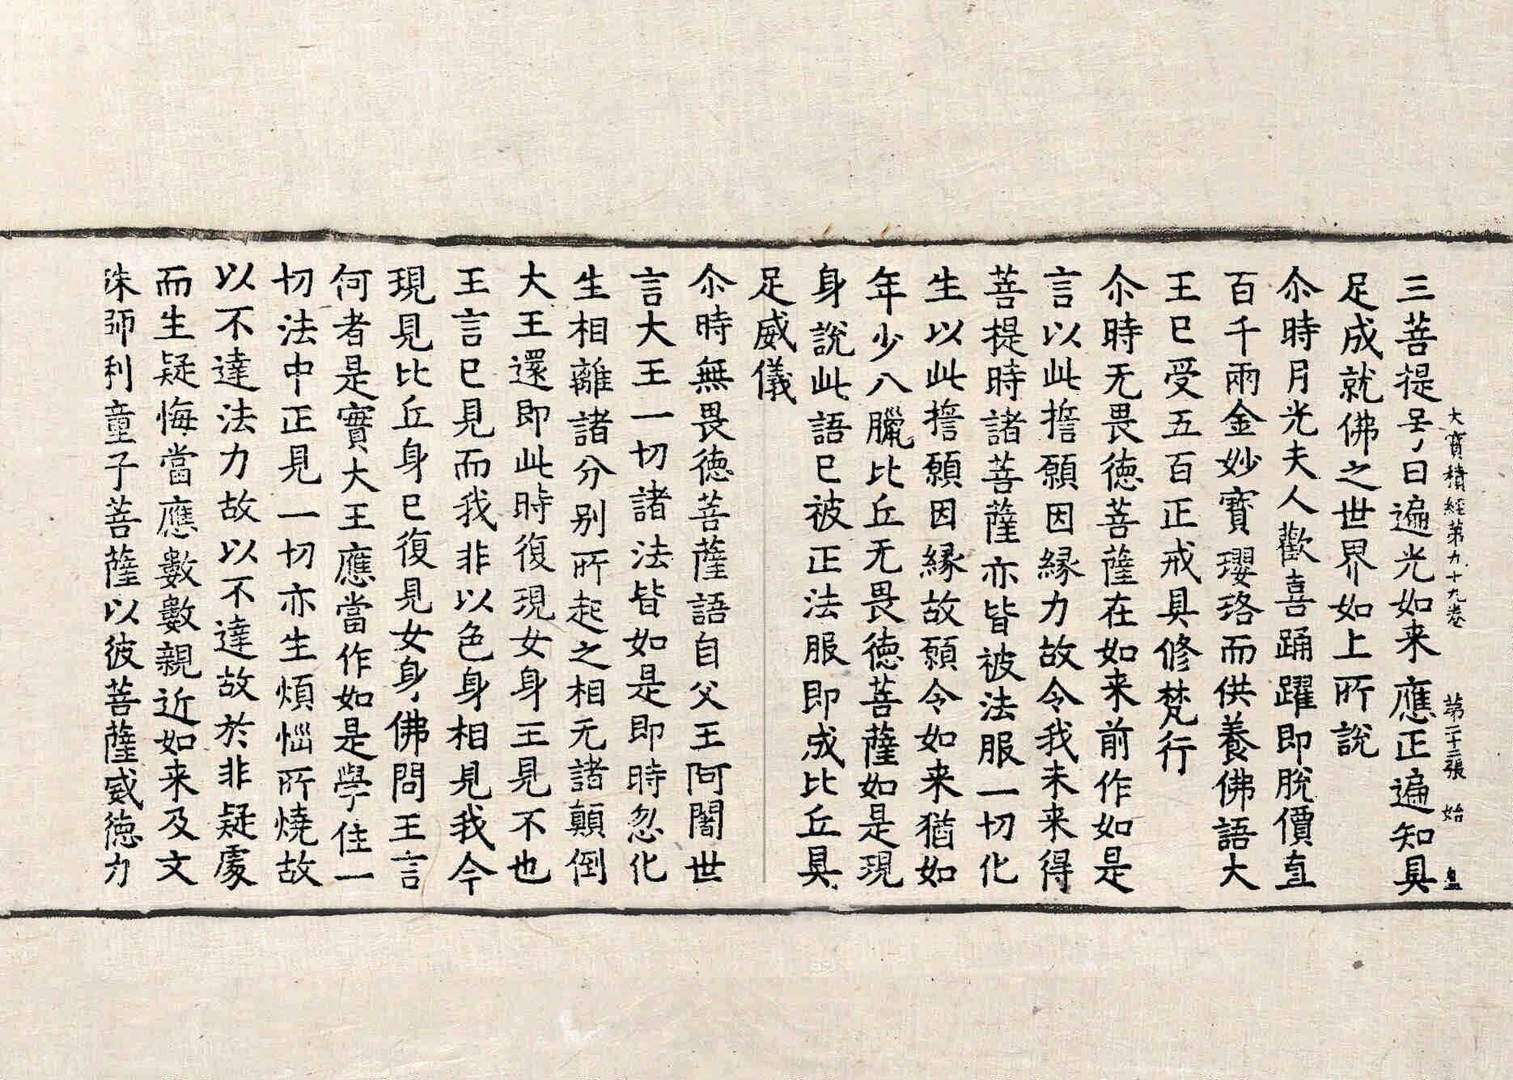 大寶積經第九十九卷 第二十二張 始 皇
三菩提号曰遍光如来應正遍知具
足成就佛之世界如上所說
尒時月光夫人歡喜踊躍即脫價直
百千兩金妙寶瓔珞而供養佛語大
王已受五百正戒具修梵行
尒時无畏德菩薩在如来前作如是
言以此擔願因縁力故令我未来得
菩提時諸菩薩亦皆被法服一切化
生以此擔願因縁故願令如来猶如
年少八臘比丘无畏德菩薩如是現
身說此語已被正法服即成比丘具
足威儀
尒時無畏徳菩薩語自父王阿闍世
言大王一切諸法皆如是即時忽化
生相離諸分別所起之相无諸顛倒
大王還即此時復現女身王見不也
王言已見而我非以色身相見我今
現見比丘身已復見女身佛問王言
何者是實大王應當作如是學住一
切法中正見一切亦生煩惱所燒故
以不達法力故以不達故於非疑處
而生疑悔當應數數親近如来及文
殊師利童子菩薩以彼菩薩威徳力